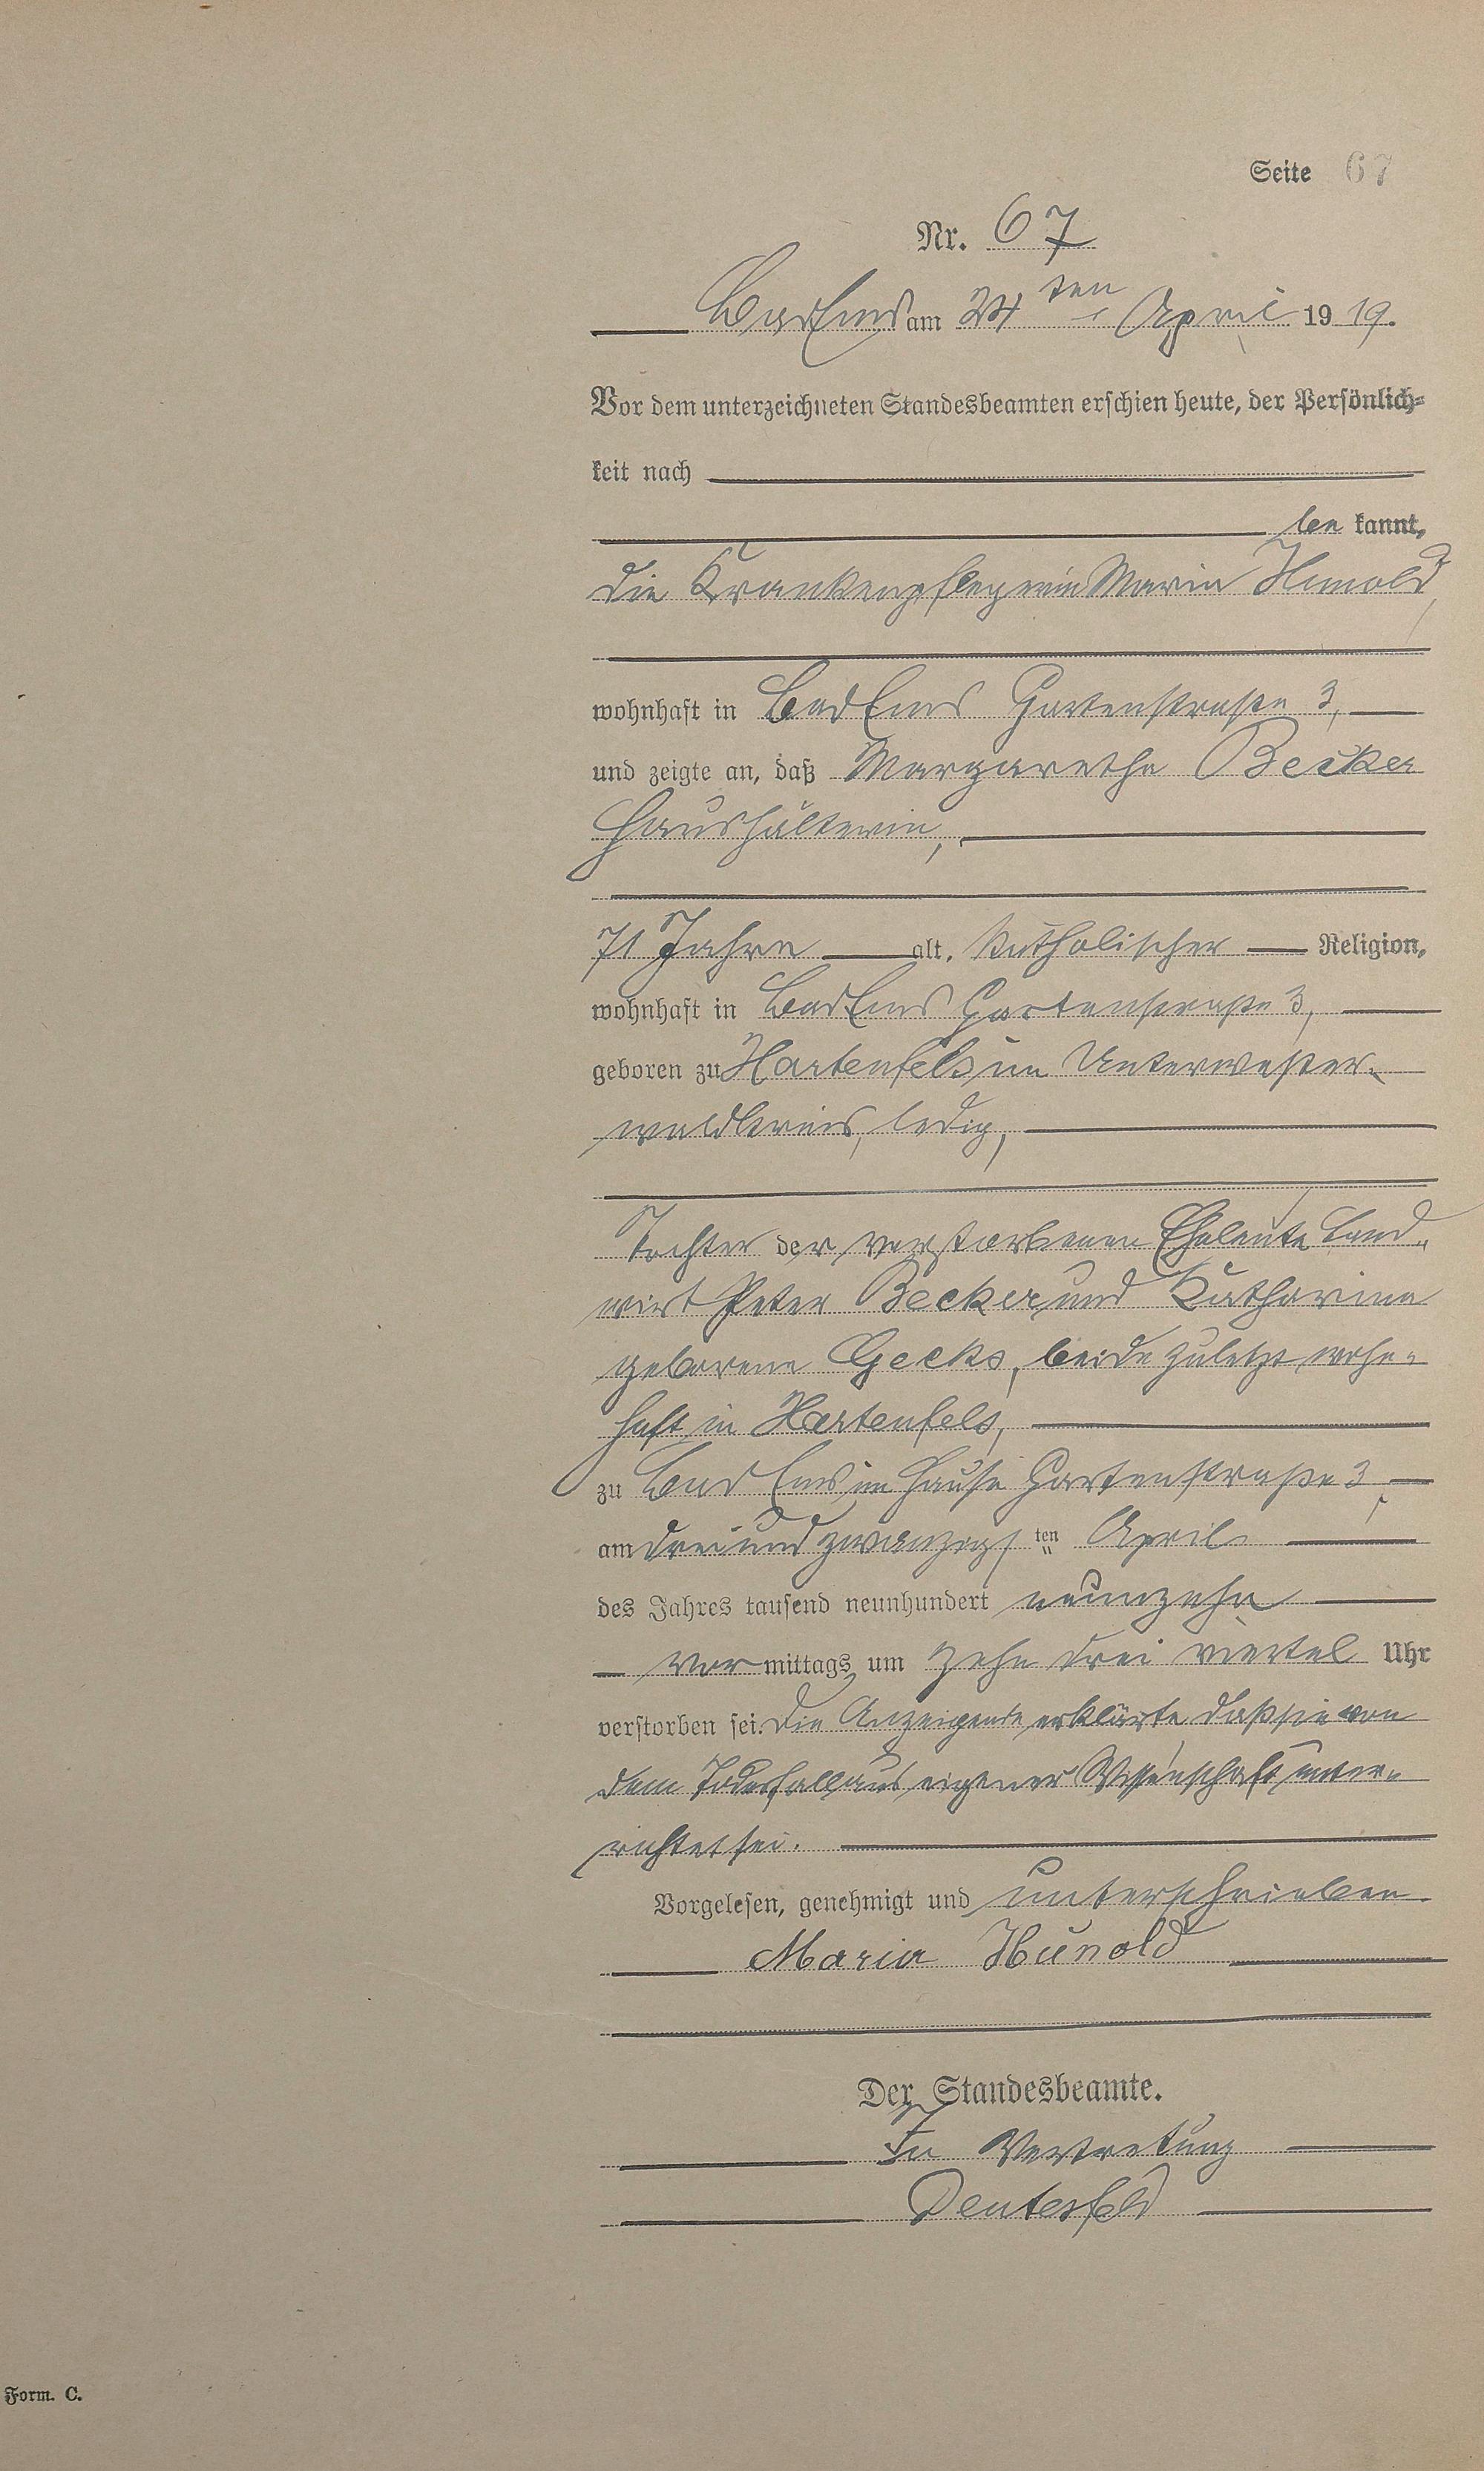 Seite 67
Nr. 67
Bad Ems am 24ten April 1919.
Vor dem unterzeichneten Standesbeamten erschien heute, der Persönlich-
keit nach
be kannt,
die Krankenpflegerin Maria Hunold,
wohnhaft in Bad Ems Gartenstraße 3,
und zeigte an, daß Margarethe Becker
Haushälterin,
71 Jahre alt, katholischer Religion,
wohnhaft in Bad Ems Gartenstraße 3,
geboren zu Hartenfels im Unterwester-
waldkreis, ledig,
Tochter der verstorbenen Eheleute Land-
wirt Peter Becker und Katharina
geborene Gecks, beide zuletzt wohn-
haft in Hartenfels,
zu Bad Ems im Hause Gartenstraße 3,
am dreiundzwanzigsten April
des Jahres tausend neunhundert neunzehn
vor mittags um zehn drei viertel Uhr
verstorben sei. Die Anzeigende erklärte daß sie von
dem Todesfall aus eigener Wissenschaft unter-
richtet sei.
Vorgelesen, genehmigt und unterschrieben
Maria Hunold
Der Standesbeamte.
In Vertretung
Deutesfeld
Form. C.